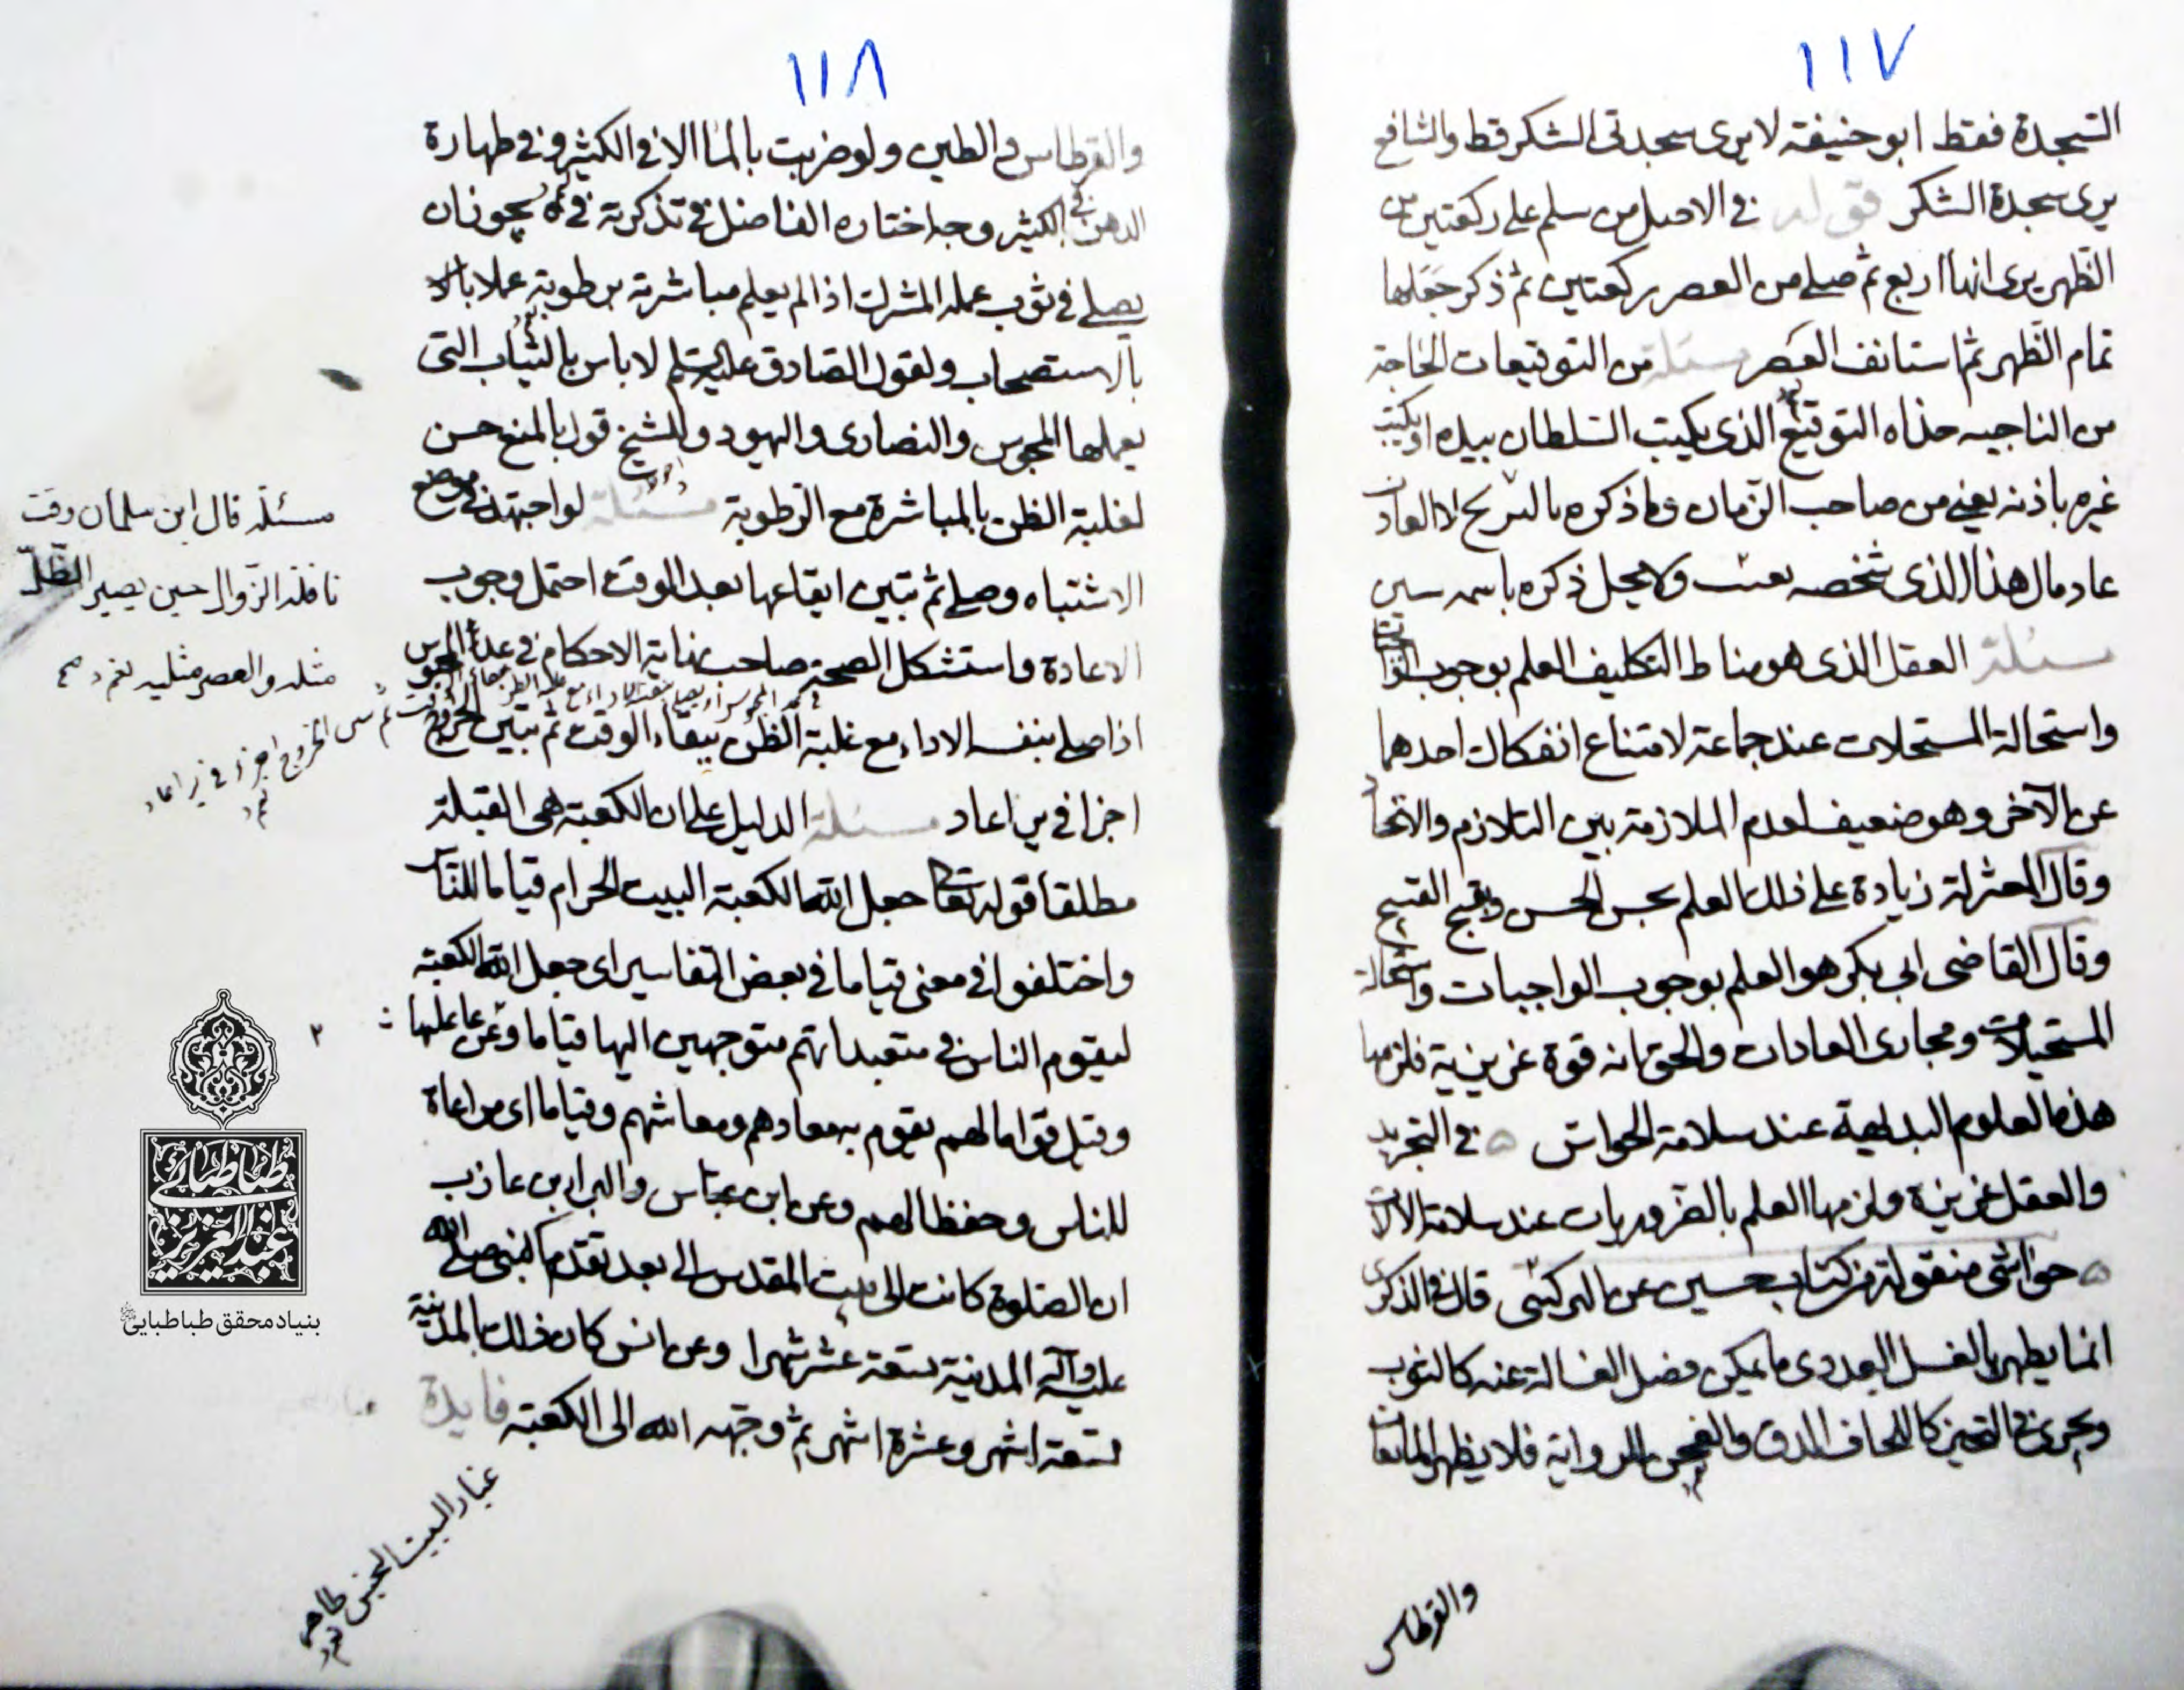 ١١٧
السجدة فقط ابو حنيفة لا يرى سجدتى الشكر قط والشافعى
يرى سجدة الشكر قوله فى الاصل من سلم على ركعتين من
الظهر يرى انها اربع ثم صلى من العصر ركعتين ثم ذكر جعلها
تمام الظهر ثم استانف العصر مسئلة من التوقيعات الخارجة
من الناحيه حذاه التوقيع الذى يكتب السلطان بيده او يكتب
غيره باذنه يعنى من صاحب الزمان وما ذكره
عاد مال هذا الذى شخصه ولا يحل ذكره باسمه
مسئلة العقل الذى هو مناط التكليف العلم بوجوب
واستحالة المستحلات عند جماعة لامتناع انفكاك احدهما
عن الآخر وهو ضعيف لعدم الملازمة بين التلازم والاتحاد
وقال المعتزلة زيادة على ذلك العلم بحسن الحسن وقبح القبيح
وقال القاضى ابى بكر هو العلم بوجوب الواجبات واستحالة
المستحيلات ومجارى العادات والحق انه قوة غريزية يلزمها
هذه العلوم البديهية عند سلامة الحواس ٥ فى التجريد
والعقل غريزة يلزمها العلم بالضروريات عند سلامة الالات
٥ حواشى منقولة من كتاب حسين عن البركشى قال فى الذكرى
انما يطهر بالغسل العددى ما يمكن فصل الغسالة عنه كالثوب
ويجرى فى الثخين كاللحاف الدق والغمز للرواية فلا يطهر المايعات
والقرطاس
١١٨
والقرطاس والطين ولو ضربت بالماء الا فى الكثير وفى طهارة
الدهن فى الكثير وجه اختاره الفاضل فى تذكرته فى يجوز ان
يصلى فى ثوب عمله المشرك اذا لم يعلم مباشرته برطوبة عملا
بالاستصحاب ولقول الصادق عليه السلم لا باس بالثياب التى
يعملها المجوس والنصارى واليهود وللشيخ قول بالمنع حسن
لغلبة الظن بالمباشرة مع الرطوبة مسئلة لو اجتهد فى موضع
الاشتباه وصلى ثم تبين ايقاعها بعد الوقت احتمل وجوب
الاعادة واستشكل الصحة صاحب نهاية الاحكام فى
اذا صلى بنفسه الاداء مع غلبة الظن ببقاء الوقت ثم تبين الخروج
اجزا فى ير اعاد مسئلة الدليل على ان الكعبة هى القبلة
مطلقا قوله تعالى جعل الله الكعبة البيت الحرام قياما للناس
واختلفوا فى معنى قياما فى بعض التفاسير اى جعل الله الكعبة
ليقوم الناس فى متعبداتهم متوجهين اليها قياما
وقيل قواما لهم يقوم به معادهم ومعاشهم وقياما اى مراعاة
للناس وحفظا لهم وعن ابن عباس والبراء بن عازب
ان الصلوة كانت الى بيت المقدس الى بعد تقدم النبى صلى الله
عليه وآله المدينة سبعة عشر شهرا وعن انس كان ذلك بالمدينة
تسعة اشهر وعشرة اشهر ثم وجهه الله الى الكعبة فايدة
غبار البيت النجس طاهر
مسئلة قال ابن سلمان وقت
نافلة الزوال حين يصير الظل
مثله والعصر مثليه
طباطبائى
عبدالعزيز
بنياد محقق طباطبايى